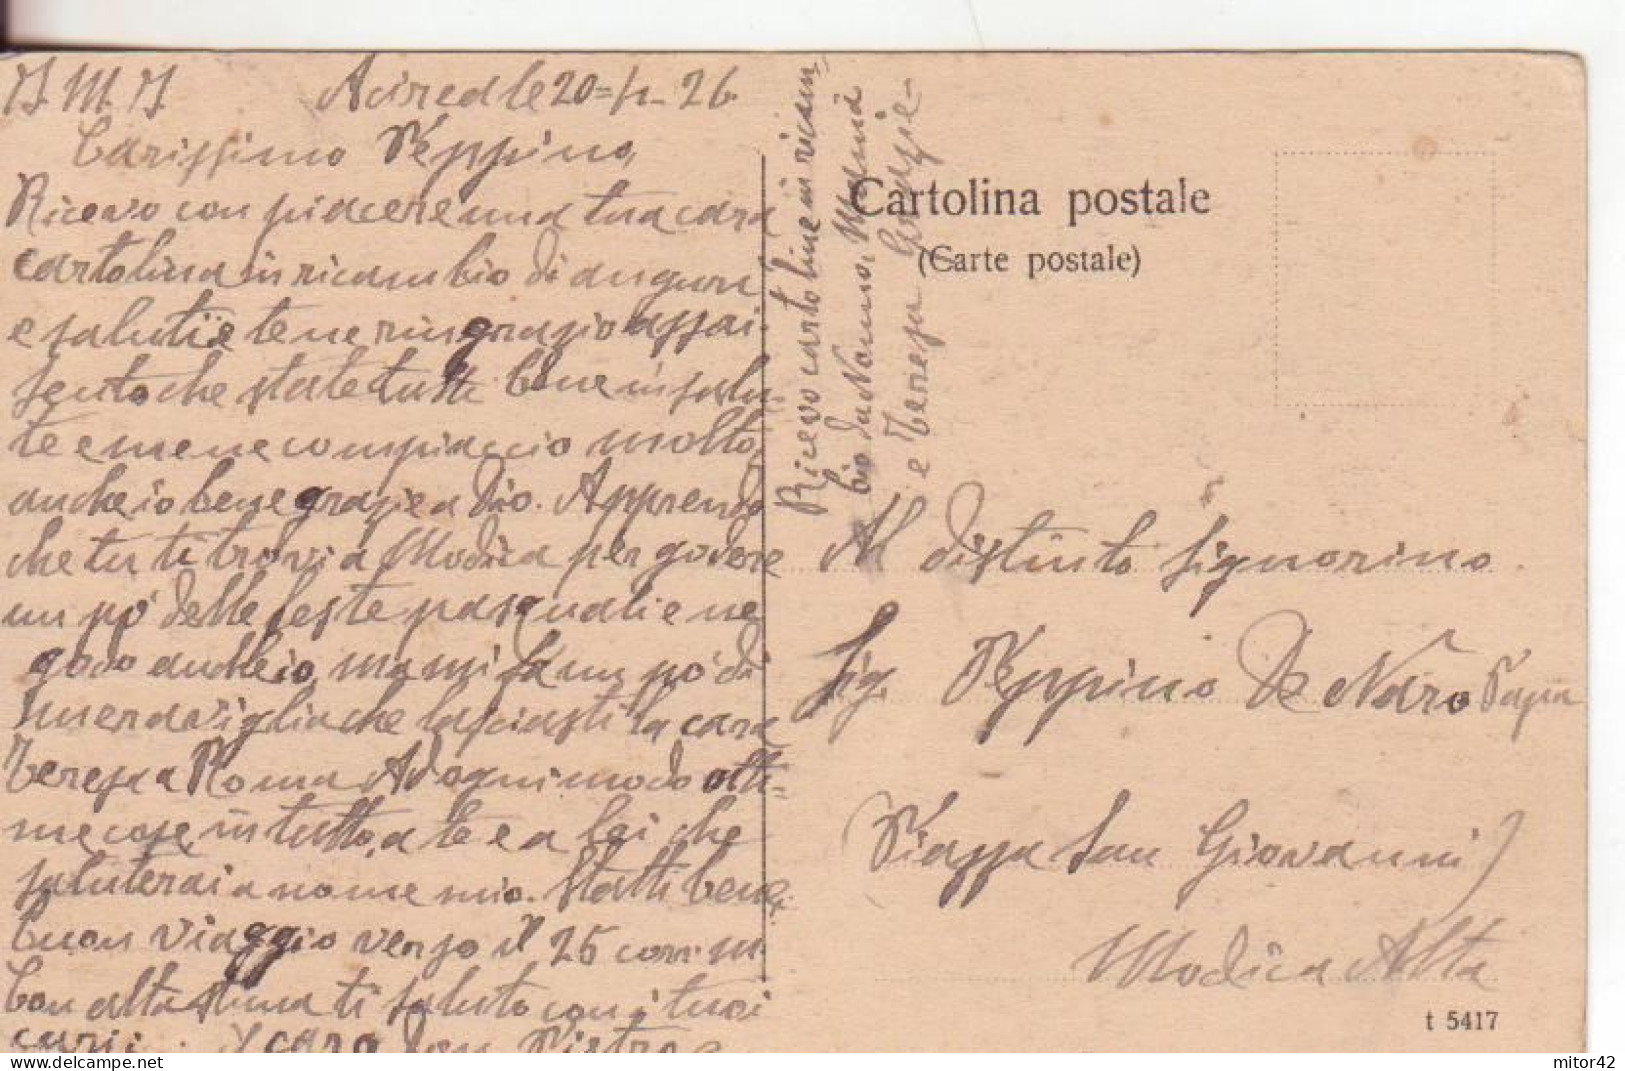 J. M. J. Acireale 20=4-26.
Carissimo Peppino,
Ricevo con piacere una tua cara
cartolina in ricambio di auguri
e saluti e te ne ringrazio assai.
Sento che state tutti bene in salu-
te e me ne compiaccio molto,
anche io bene grazie a Dio. Apprendo
che tu ti trovi a Modica per godere
un pò delle feste pasquali e ne
godo anch'io, ma mi fa un pò di
meraviglia che lasciasti la cara
Teresa a Roma. Ad ogni modo otti=
me cose in tutto, a te e a lei che
saluterai a nome mio. Statti bene,
buon viaggio verso il 25 corr. m.
Con alta stima ti saluto con i tuoi
cari: cara Don Pietro e
Ricevo cartoline in ricam-
bio da Nonno, Mammà
e Teresa Grazie-
Cartolina postale
(Carte postale)
Al distinto Signorino
Sig. Peppino De Naro Papa
(Piazza San Giovanni)
Modica Alta
t 5417
mitor42